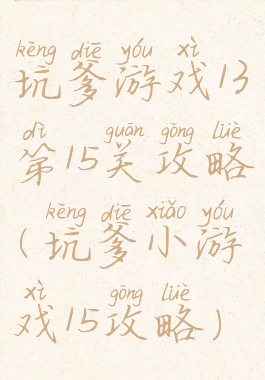 kēng diē yóu xì
坑爹游戏13
dì guān gōng lüè
第15关攻略
kēng diē xiǎo yóu
(坑爹小游
xì gōng lüè
戏15攻略)